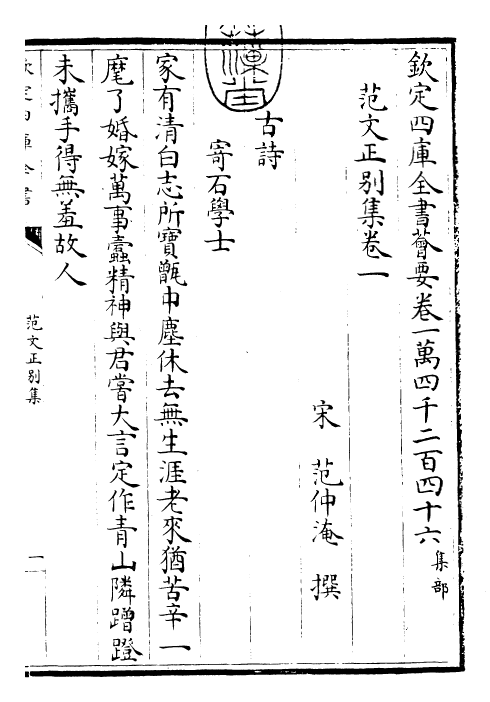 欽定四庫全書薈要卷一萬四千二百四十六集部
范文正別集卷一
宋 范仲淹 撰
古詩
寄石學士
家有清白志所寶甑中塵休去無生涯老來猶苦辛一
麾了婚嫁萬事蠹精神與君嘗大言定作青山隣蹭蹬
未攜手得無羞故人
欽定四庫全書
范文正別集
一